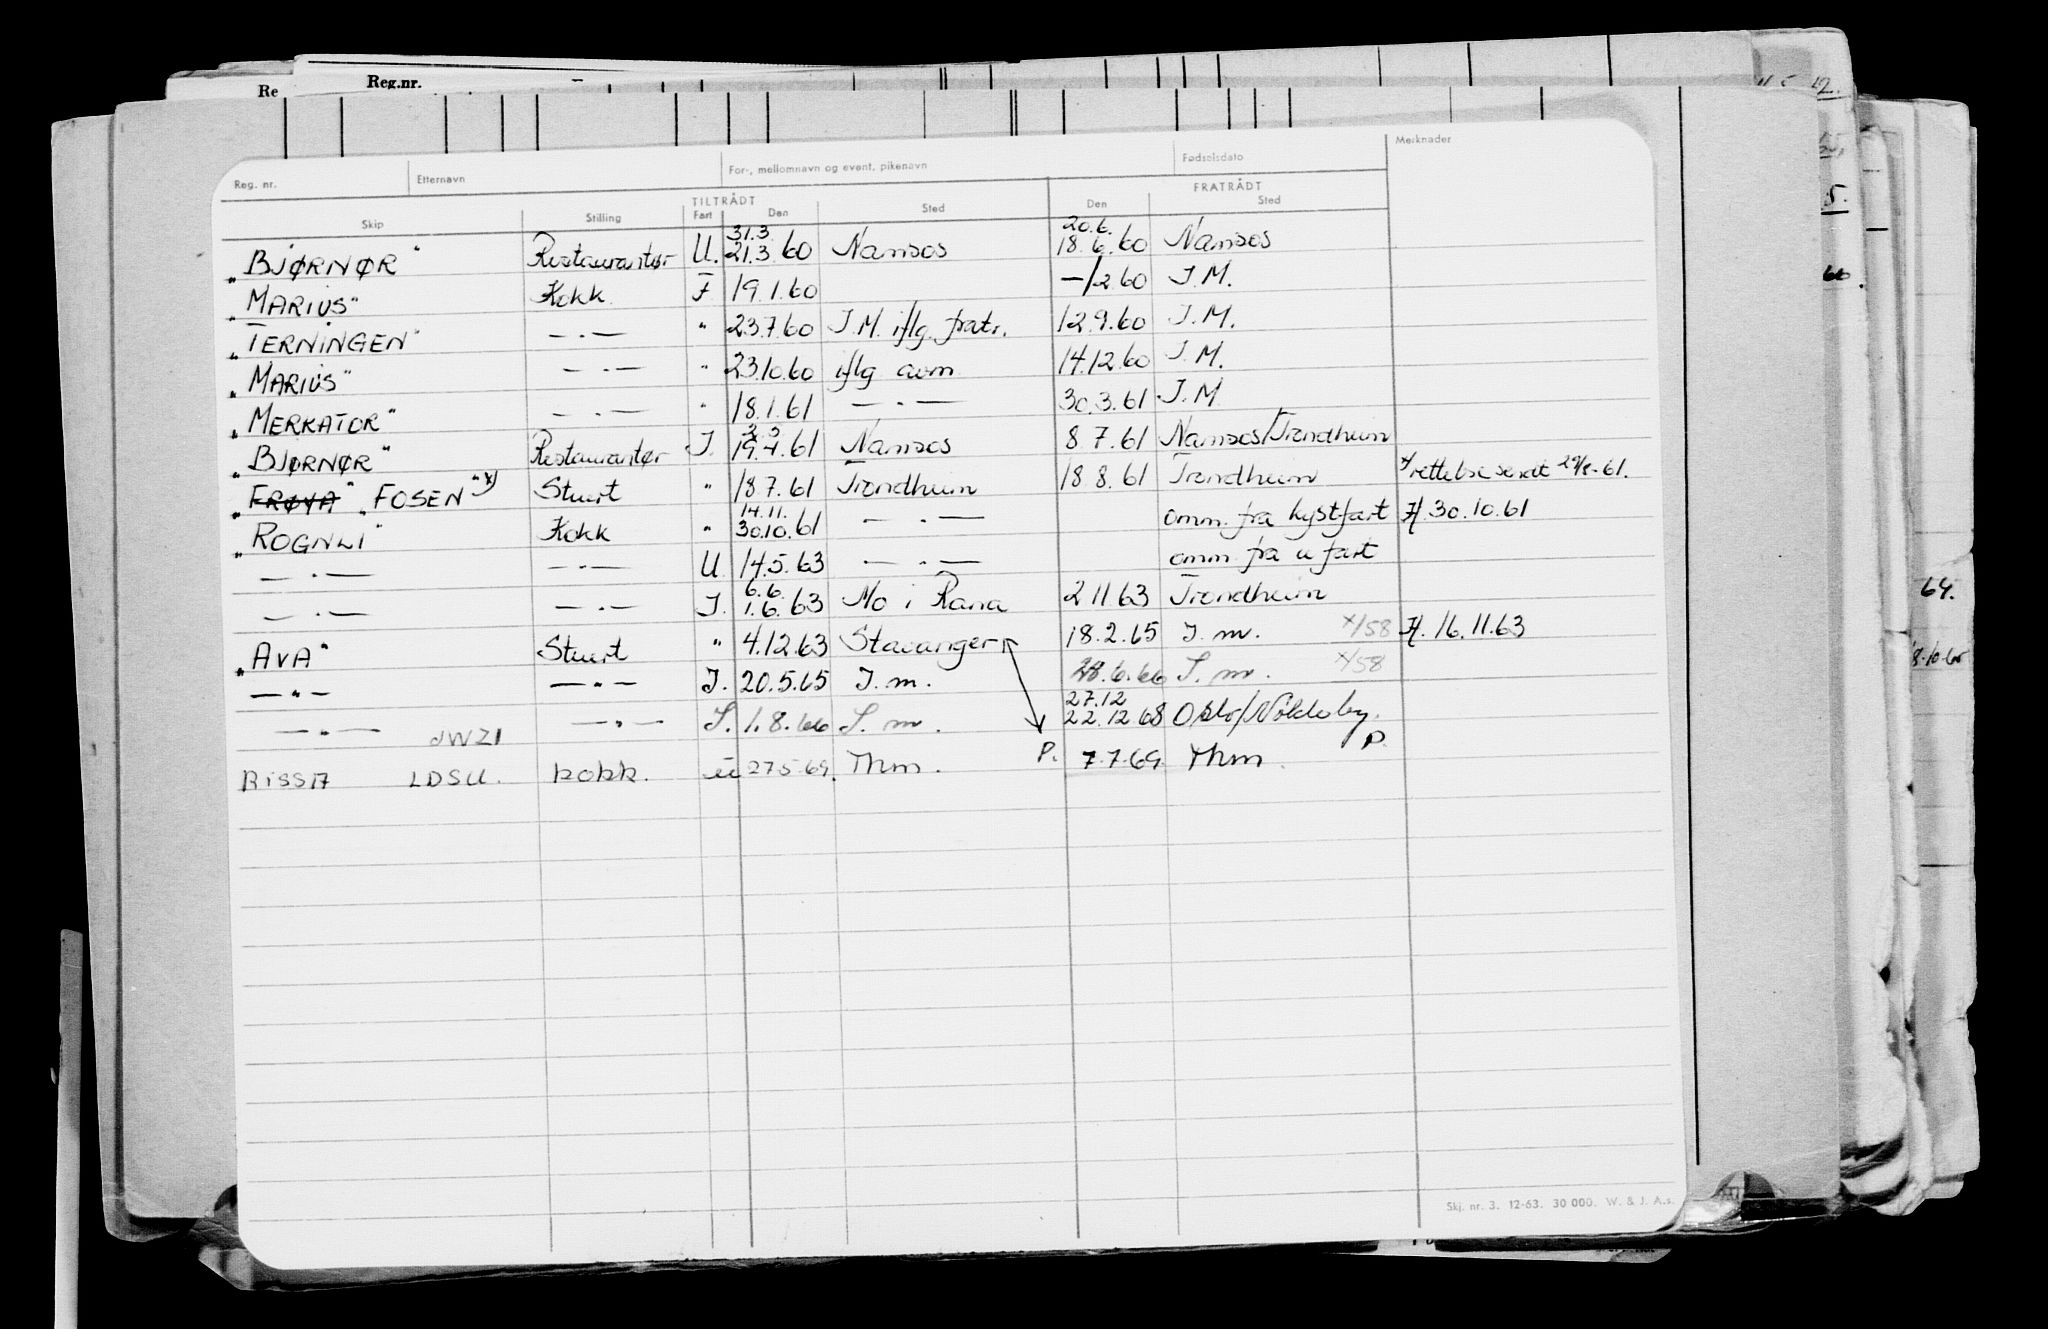 Re Reg.nr.
Reg. nr. Etternavn For-, mellomnavn og event. pikenavn Fødselsdato Merknader
TILTRÅDT FRATRÅDT
Skip Stilling Fart Den Sted Den Sted
31.3. 20.6.
"BJØRNØR" Restaurantør U. 21.3.60 Namsos 18.6.60 Namsos
"MARIUS" Kokk F 19.1.60 -/2.60 I.M.
"TERNINGEN" — · — " 23.7.60 I.M. iflg. fratr. 12.9.60 I.M.
"MARIUS" — · — " 23.10.60 iflg avm 14.12.60 I.M.
"MERKATOR" — · — " 18.1.61 — · — 30.3.61 I.M
"BJØRNØR" Restaurantør I. 19.4.61 Namsos 8.7.61 Namsos/Trondheim
"FRØYA" "FOSEN" x) Stuert " 18.7.61 Trondheim 18.8.61 Trondheim x) rettelse sendt 29/8-61.
14.11.
"ROGNLI" Kokk " 30.10.61 — · — omm. fra kystfart H. 30.10.61
— · — — · — U 14.5.63 — · — omm. fra u fart
6.6.
— · — — · — I. 1.6.63 Mo i Rana 2.11.63 Trondheim
"AVA" Stuert " 4.12.63 Stavanger 18.2.65 I.m. x/58 H. 16.11.63
— " — — " — I. 20.5.65 I.m. 28.6.66 I.m. x/58
27.12
— " — JWZI — " — I. 1.8.66 I.m. 22.12.68 Oslo/
P.
RISSA LDSU. kokk. u 27.5.69. Thm. P. 7.7.69. Thm.
64.
8.10.65
Skj. nr. 3. 12-63. 30 000. W. & J. A.s.